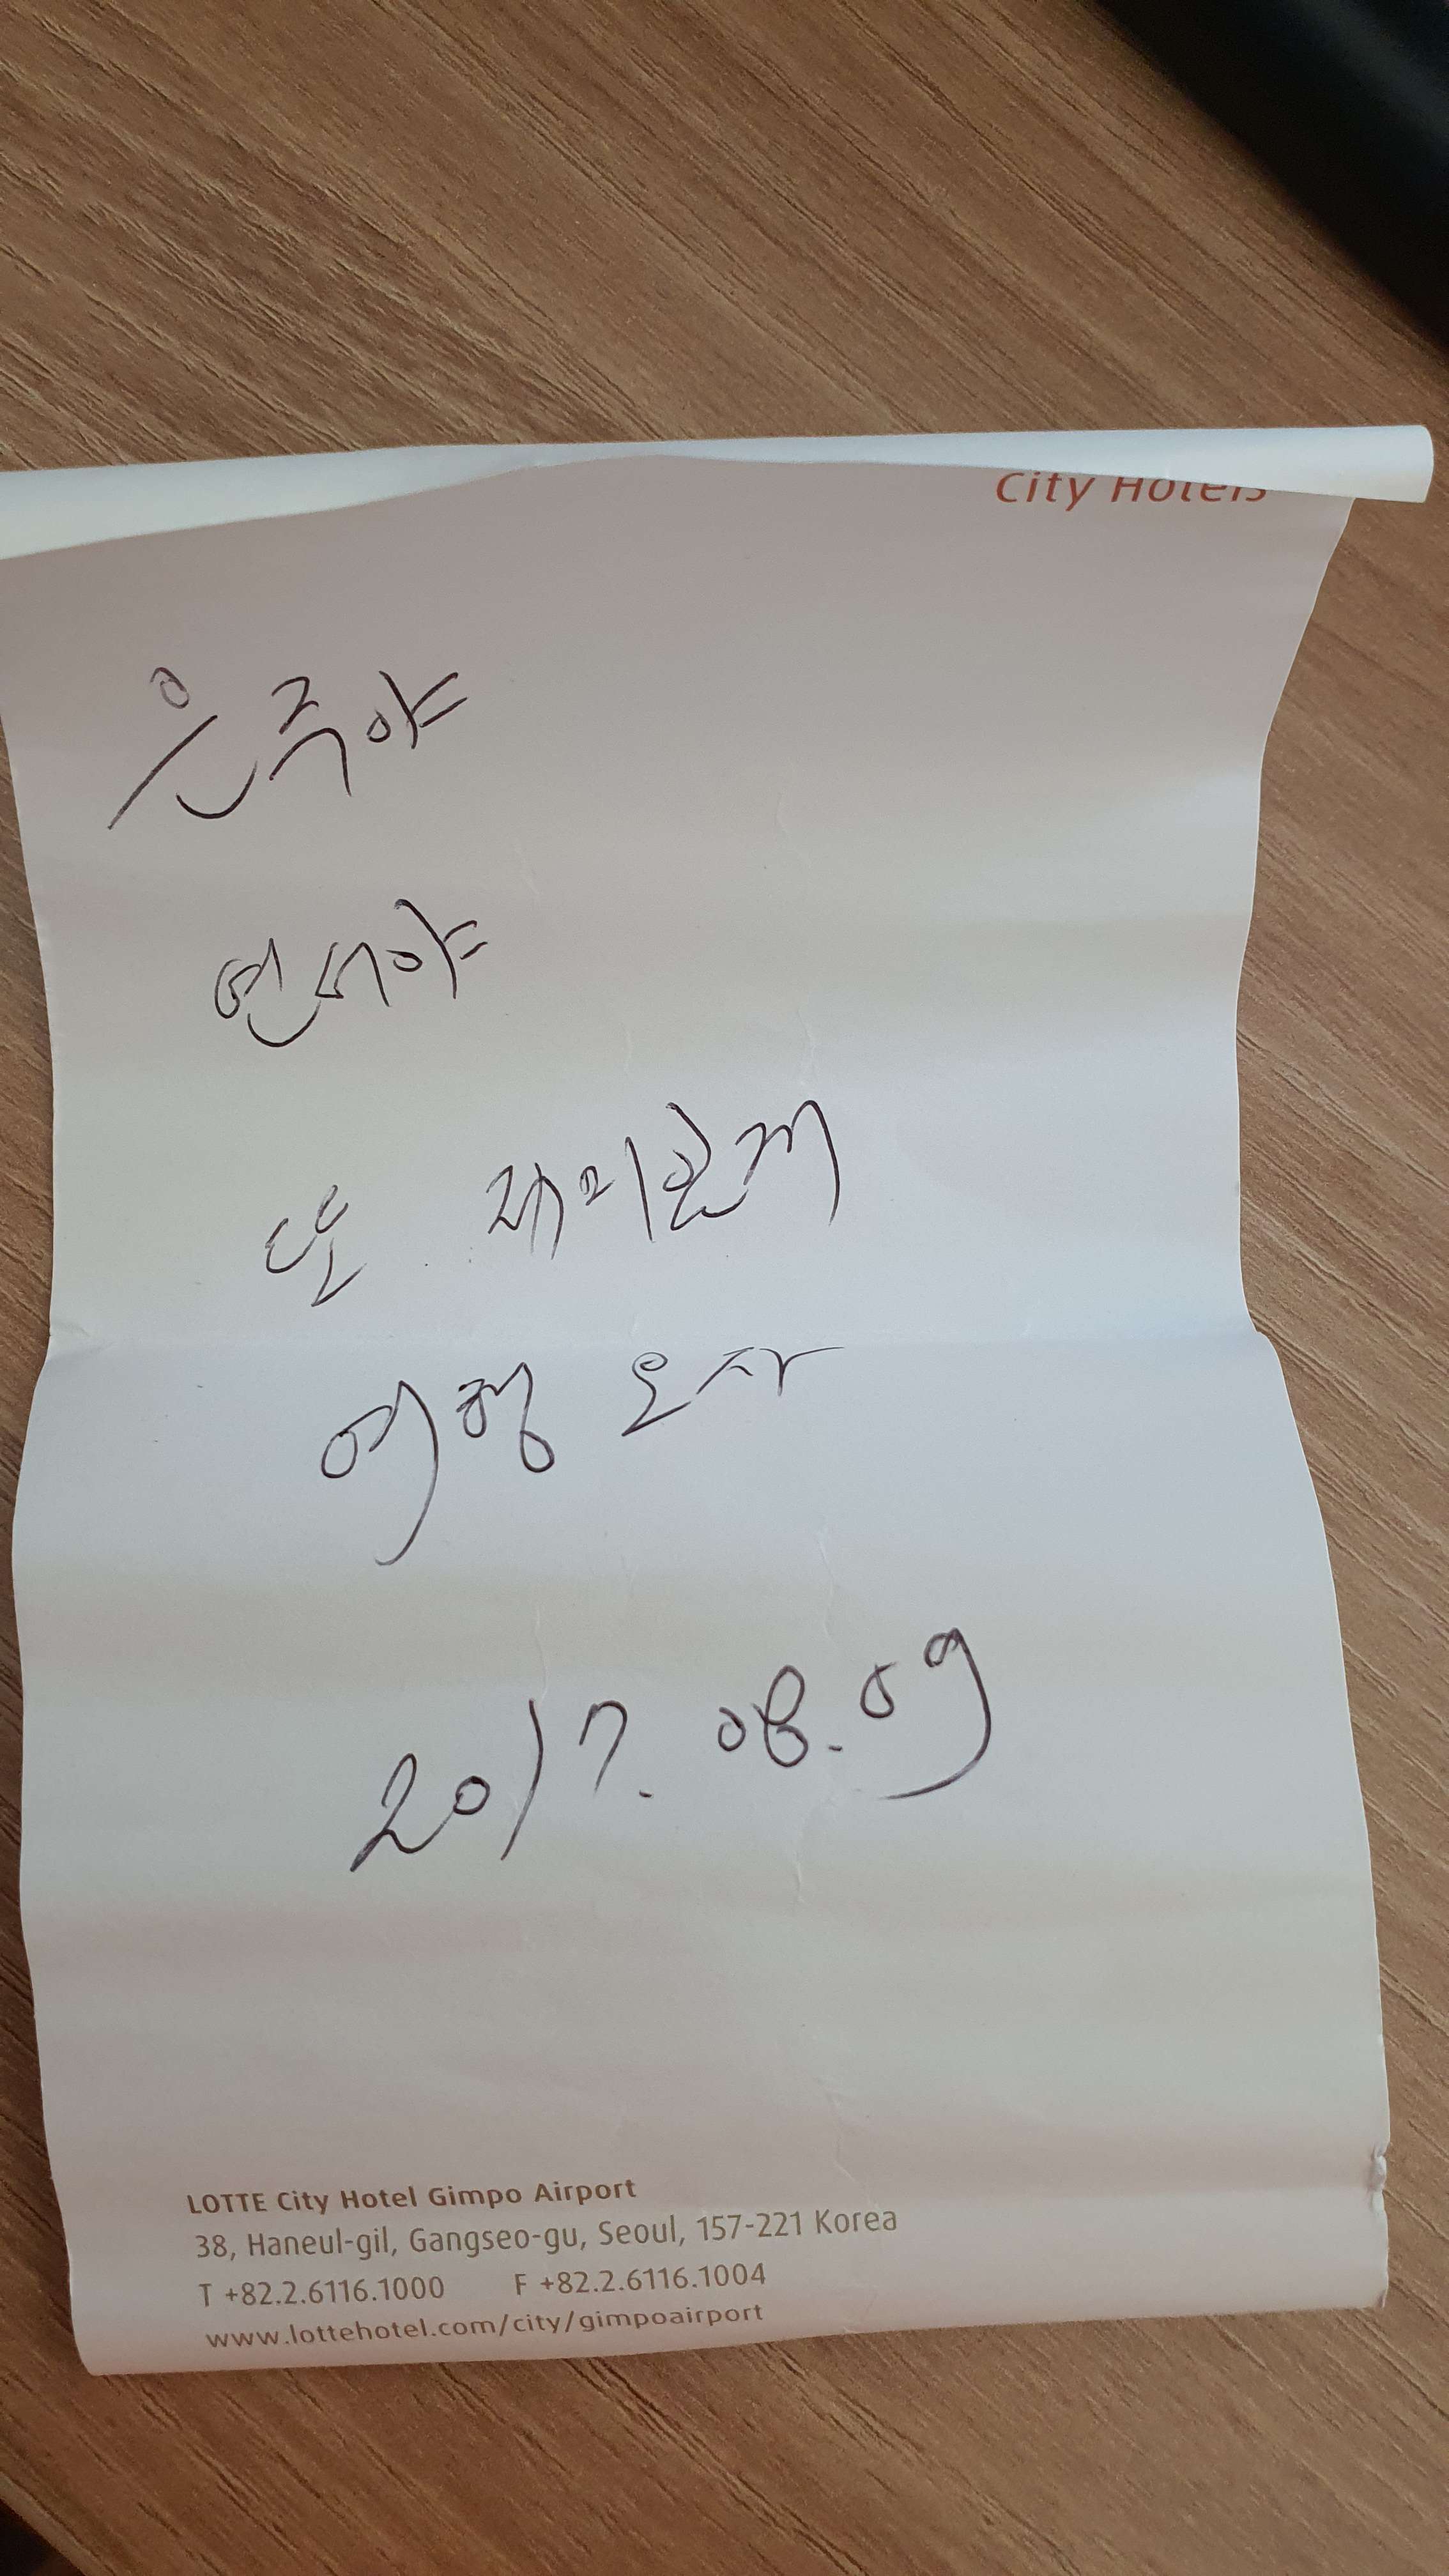 City Hotels
은주야
연서야
또 재미있게
여행 오자
2017. 08. 09
LOTTE City Hotel Gimpo Airport
38, Haneul-gil, Gangseo-gu, Seoul, 157-221 Korea
T +82.2.6116.1000 F +82.2.6116.1004
www.lottehotel.com/city/gimpoairport